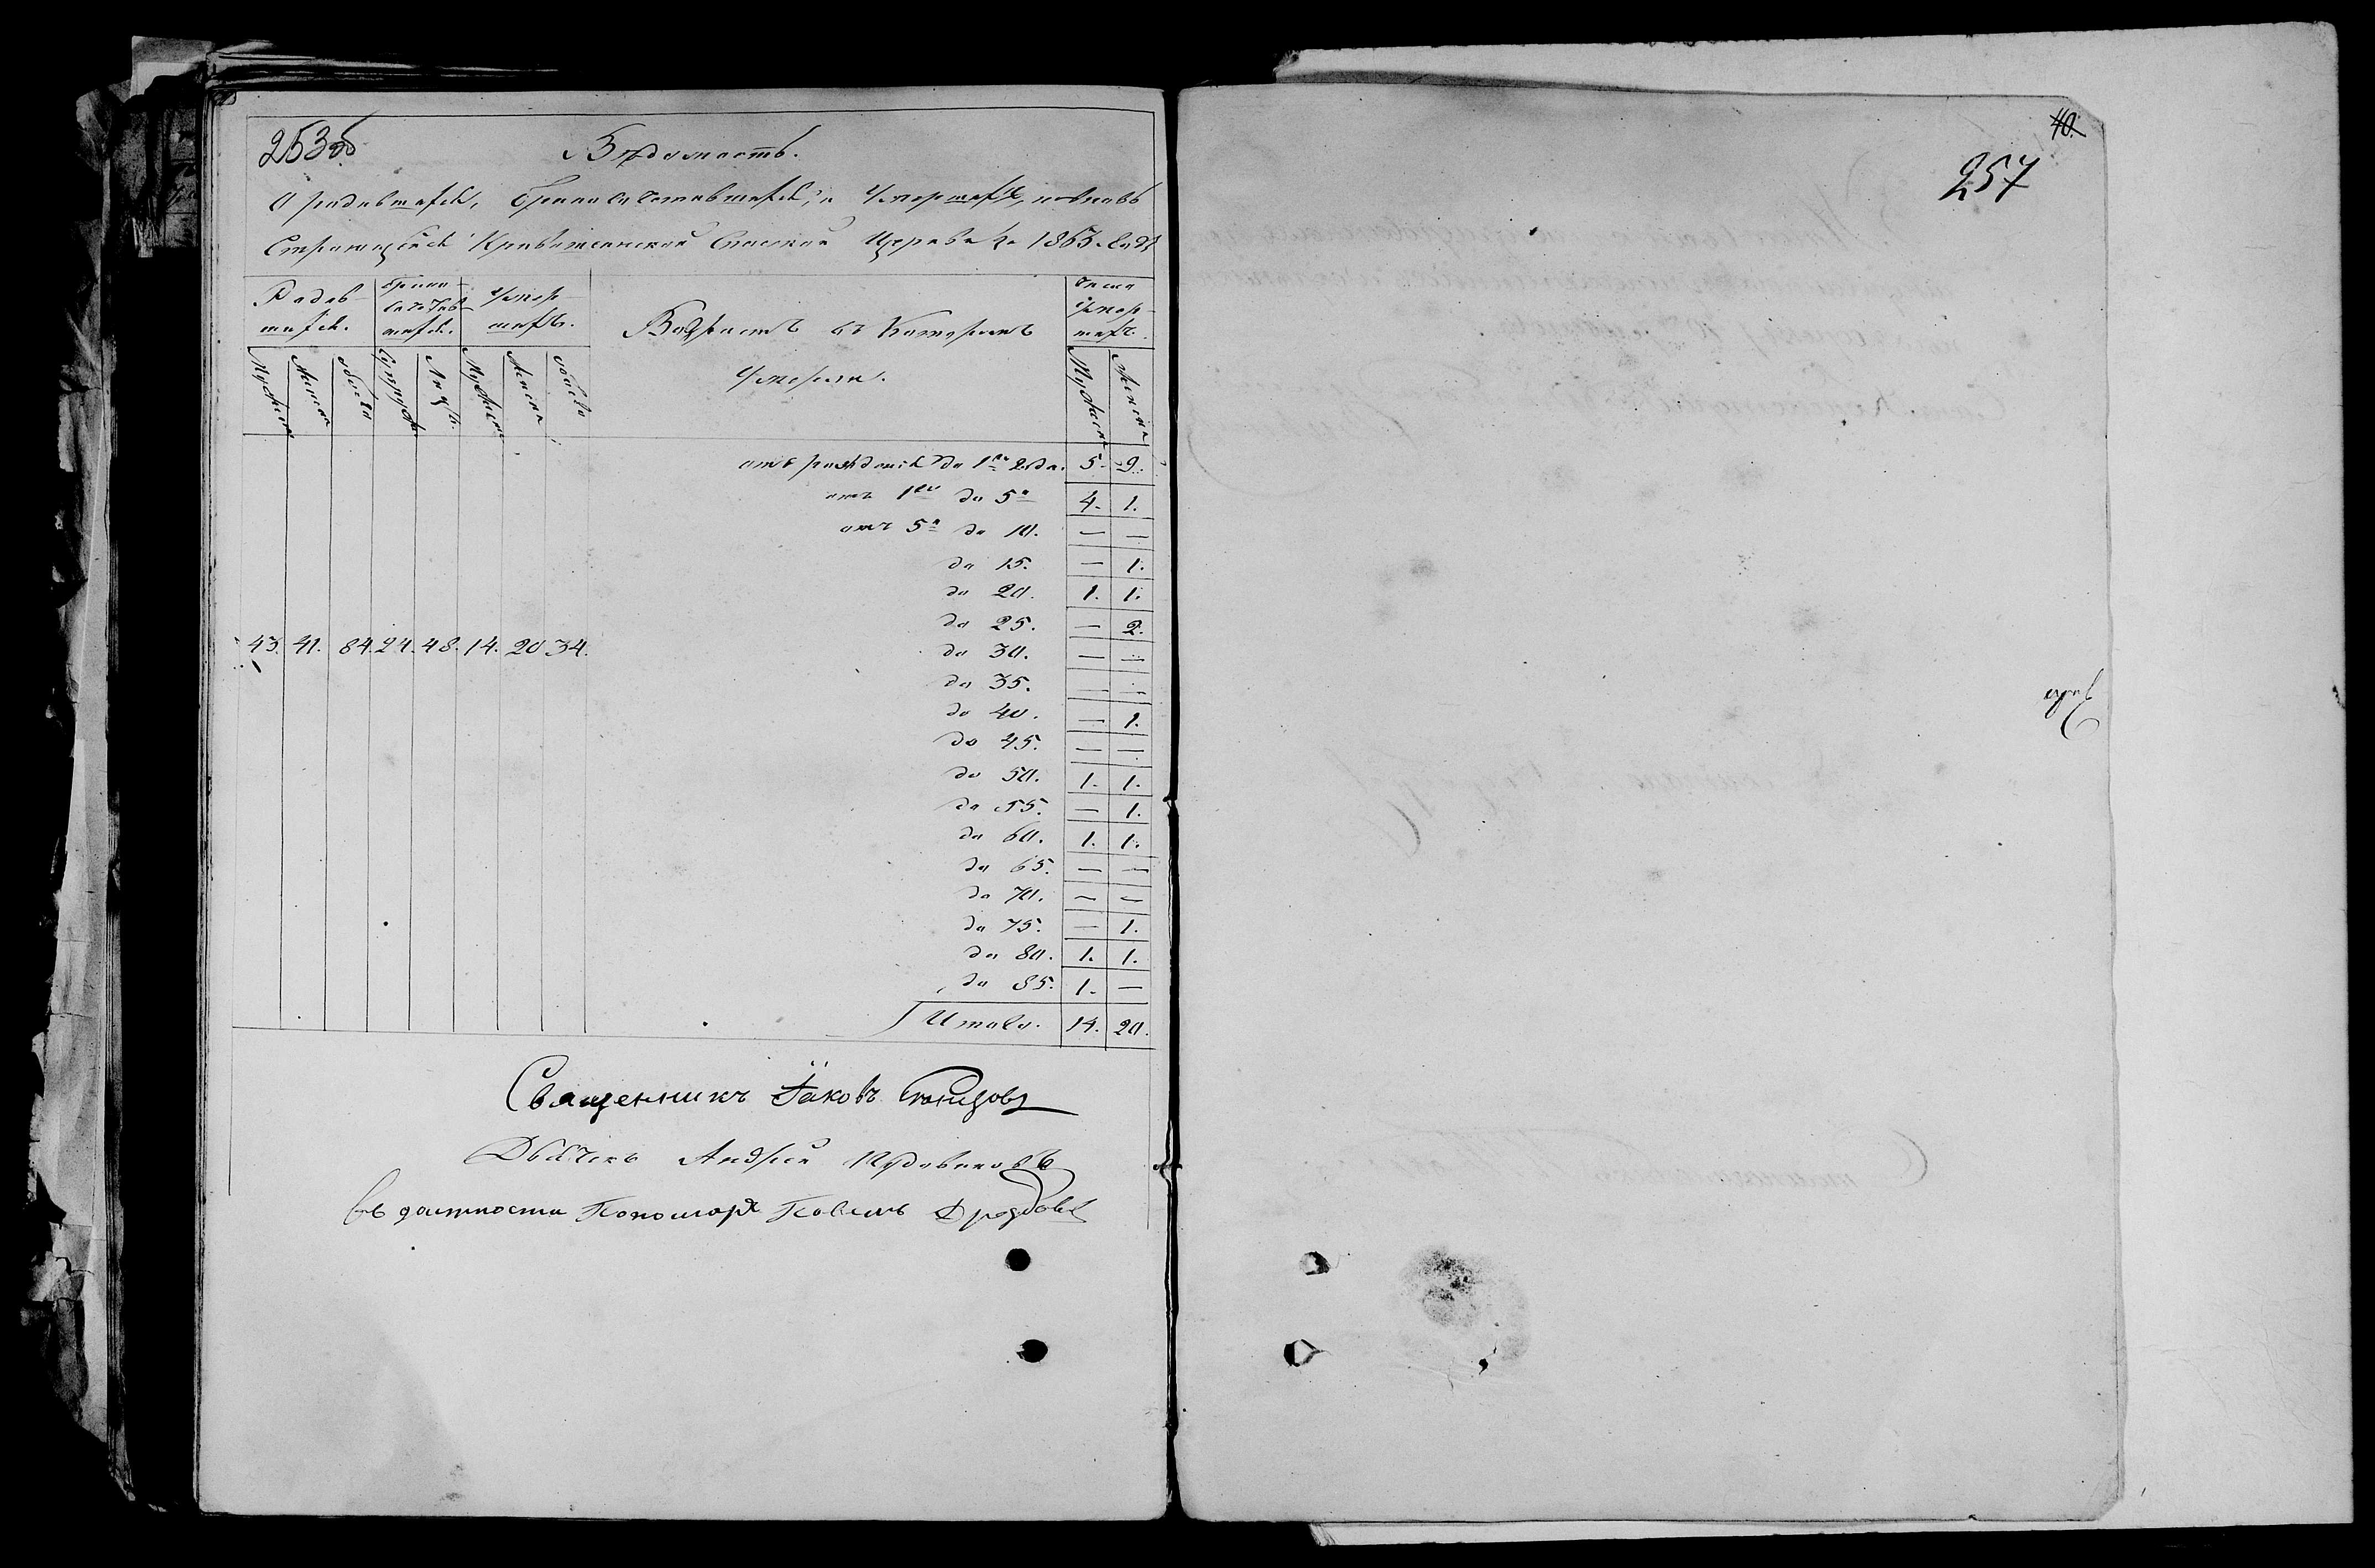 253 об
Ведомость.
О родившихся, бракосочетавшихся, и Умершихъ, по вновь
Строющейся Спаской Церкви за 1863. годъ
Родив-
шихся.
Брако-
сочетав-
шихся.
Умер-
шихъ.
Возрастъ въ Которомъ
Умерли.
Число
Умер-
шихъ.
Мужеска
Женска
обоего
Супруж.
Лицъ.
Мужеска
Женска
обоего
Мужеска
Женска
отъ рожденія до 1го года. 5. 9.
отъ 1го до 5и 4. 1.
отъ 5и до 10. — —
до 15. — 1.
до 20. 1. 1.
до 25. — 2.
43. 41. 84. 24. 48. 14. 20 34.
до 30. — —
до 35. — —
до 40. — 1.
до 45. — —
до 50. 1. 1.
до 55. — 1.
до 60. 1. 1.
до 65. — —
до 70. — —
до 75. — 1.
до 80. 1. 1.
до 85. 1. —
Итого. 14. 20.
Священникъ Іаковъ
Дьячекъ Андрей
Въ должности Пономаря Павелъ
40.
257